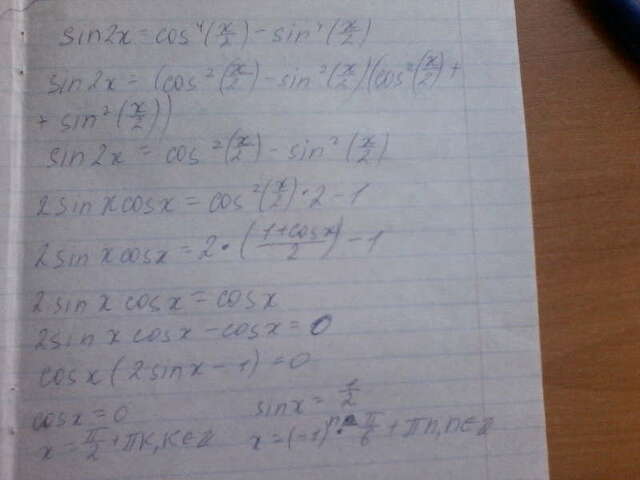 sin2x = cos⁴(x/2) - sin⁴(x/2)
sin2x = (cos²(x/2) - sin²(x/2))(cos²(x/2) +
+ sin²(x/2))
sin2x = cos²(x/2) - sin²(x/2)
2sinxcosx = cos²(x/2)·2-1
2sinxcosx = 2·((1+cosx)/2) - 1
2sinx cosx = cosx
2sinx cosx - cosx = 0
cosx(2sinx-1) = 0
cosx = 0 sinx = 1/2
x = π/2 + πk, k∈Z x = (-1)ⁿ·π/6 + πn, n∈Z